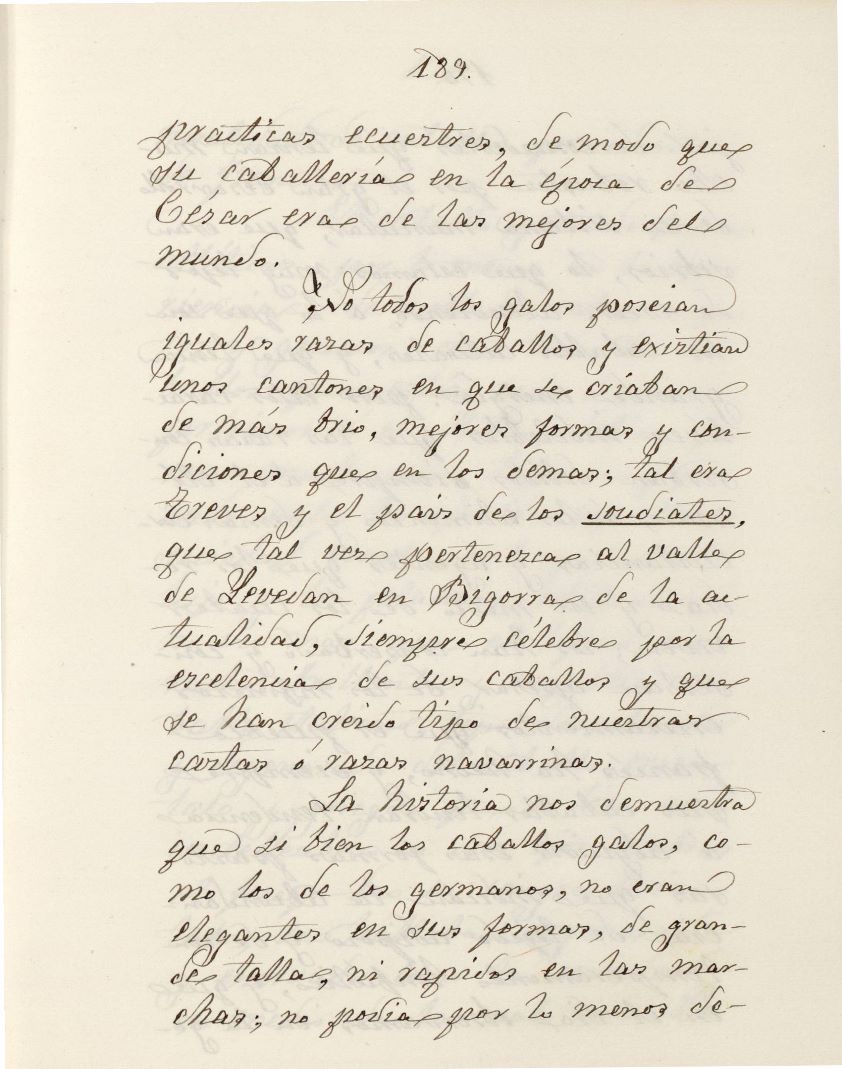 189.
practicas ecuestres, de modo que
su caballería en la época de
César era de las mejores del
mundo.
No todos los galos poseian
iguales razas de caballos y existian
unos cantones en que se criaban
de más brio, mejores formas y con-
diciones que en los demas; tal era
Treves y el pais de los soudiates,
que tal vez pertenezca al valle
de Levedan en Bigorra de la ac-
tualidad, siempre célebre por la
escelencia de sus caballos y que
se han creido tipo de nuestras
castas ó razas navarrinas.
La historia nos demuestra
que si bien los caballos galos, co-
mo los de los germanos, no eran
elegantes en sus formas, de gran-
de talla, ni rapidos en las mar-
chas; no podia por lo menos de-